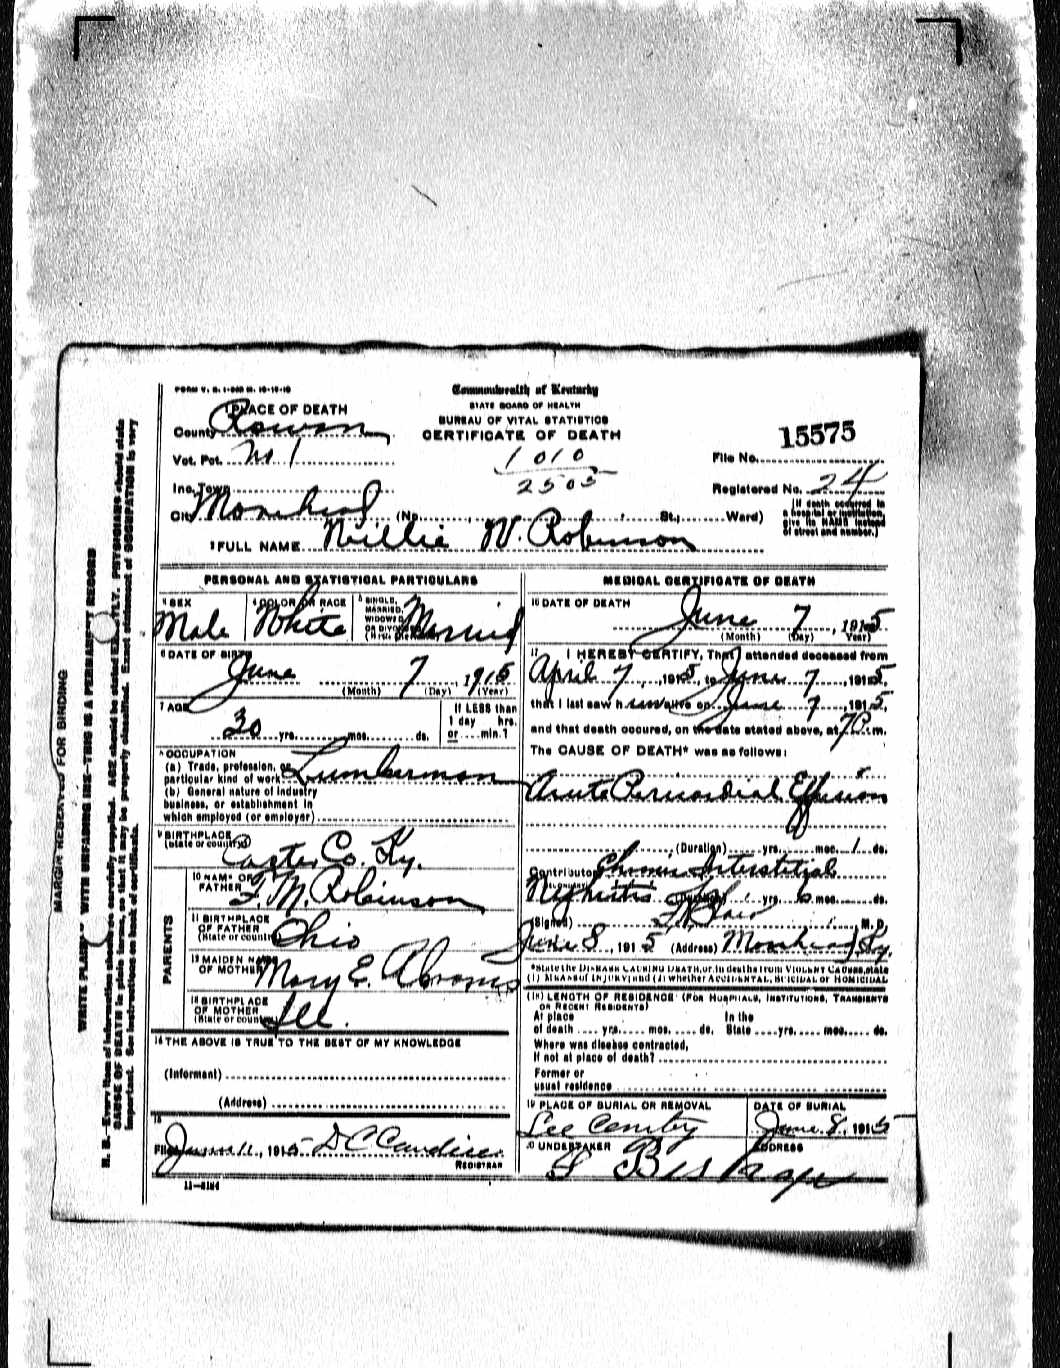 FORM V. S. 1-50M M. 10-15-10
Commonwealth of Kentucky
STATE BOARD OF HEALTH
BUREAU OF VITAL STATISTICS
CERTIFICATE OF DEATH
1 PLACE OF DEATH
County Rowan
Vot. Pct. No 1
Inc. Town
City Morehead (No. , St., Ward)
1010
2505
15575
File No.
Registered No. 24
(If death occurred in a hospital or institution, give its NAME instead of street and number.)
2 FULL NAME Willie W. Robinson
PERSONAL AND STATISTICAL PARTICULARS
3 SEX Male
4 COLOR OR RACE White
5 SINGLE, MARRIED, WIDOWED OR DIVORCED Married
6 DATE OF BIRTH June 7, 1915
(Month) (Day) (Year)
7 AGE 30 yrs. mos. ds.
If LESS than 1 day hrs. or min.?
8 OCCUPATION
(a) Trade, profession, or particular kind of work Lumberman
(b) General nature of industry
business, or establishment in
which employed (or employer)
9 BIRTHPLACE
(State or country) Carter Co. Ky.
PARENTS
10 NAME OF FATHER F. M. Robinson
11 BIRTHPLACE OF FATHER (State or country) Ohio
12 MAIDEN NAME OF MOTHER Mary E. Abrams
13 BIRTHPLACE OF MOTHER (State or country) Ill.
14 THE ABOVE IS TRUE TO THE BEST OF MY KNOWLEDGE
(Informant)
(Address)
15
Filed June 11, 1915 D C Caudill
REGISTRAR
11-5184
MEDICAL CERTIFICATE OF DEATH
16 DATE OF DEATH June 7, 1915
(Month) (Day) (Year)
17 I HEREBY CERTIFY, That I attended deceased from
April 7, 1915, to June 7, 1915,
that I last saw him alive on June 7, 1915,
and that death occured, on the date stated above, at 7 P. m.
The CAUSE OF DEATH* was as follows:
Acute Pericardial Effusion
(Duration) yrs. mos. 1 ds.
Contributory Chronic Interstitial
Nephritis yrs. 6 mos. ds.
(Signed) Blair M. D.
June 8, 1915 (Address) Morehead Ky.
*State the DISEASE CAUSING DEATH, or, in deaths from VIOLENT CAUSES, state
(1) MEANS OF INJURY; and (2) whether ACCIDENTAL, SUICIDAL or HOMICIDAL
(18) LENGTH OF RESIDENCE (FOR HOSPITALS, INSTITUTIONS, TRANSIENTS
OR RECENT RESIDENTS)
At place In the
of death yrs. mos. ds. State yrs. mos. ds.
Where was disease contracted,
If not at place of death?
Former or
usual residence
19 PLACE OF BURIAL OR REMOVAL
Lee Cemetry
DATE OF BURIAL
June 8, 1915
20 UNDERTAKER
ADDRESS
MARGIN RESERVED FOR BINDING
WRITE PLAINLY WITH UNFADING INK—THIS IS A PERMANENT RECORD
N. B.—Every item of information should be carefully supplied. AGE should be stated EXACTLY. PHYSICIANS should state
CAUSE OF DEATH in plain terms, so that it may be properly classified. Exact statement of OCCUPATION is very
important. See instructions on back of certificate.